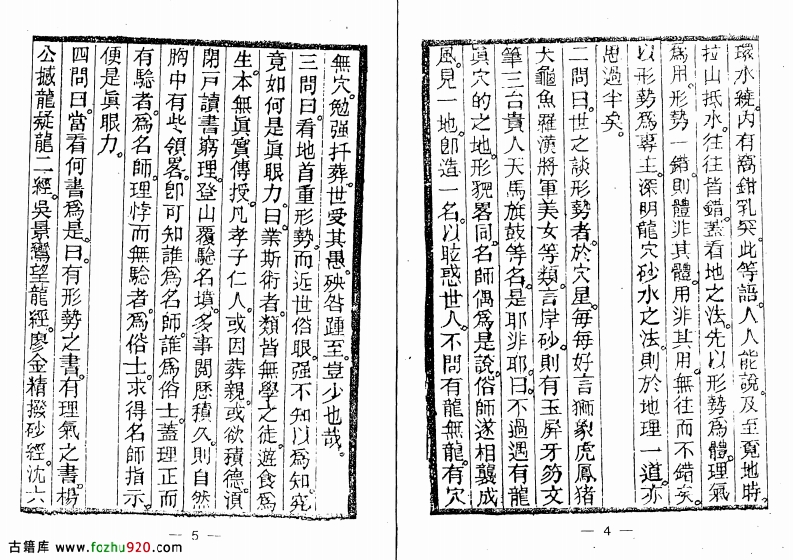 環水繞。內有窩鉗乳突。此等語。人人能說。及至覓地時。
拉山抵水。往往皆錯。蓋看地之法。先以形勢為體。理氣
為用。形勢一錯。則體非其體。用非其用。無往而不錯矣。
以形勢為專主。深明龍穴砂水之法。則於地理一道。亦
思過半矣。
二問曰。世之談形勢者。於穴星。每每好言獅象虎鳳猪
犬龜魚羅漢將軍美女等類。言岸砂。則有玉屏牙笏文
筆三台貴人天馬旗鼓等名。是耶非耶。曰。不過遇有龍
眞穴的之地。形貌畧同。名師偶為是說。俗師遂相襲成
風。見一地。卽造一名。以眩惑世人。不問有龍無龍。有穴
無穴。勉強扦葬。世受其愚。殃咎踵至。豈少也哉。
三問曰。看地首重形勢。而近世俗眼。强不知以為知。究
竟如何是眞眼力。曰。業斯術者。類皆無學之徒。遊食為
生。本無眞實傳授。凡孝子仁人。或因葬親。或欲積德。湏
閉戸讀書窮理。登山覆驗名墳。多事閱歷。積久。則自然
胸中有些領畧。卽可知誰為名師。誰為俗士。蓋理正而
有驗者。為名師。理悖而無驗者。為俗士。求得名師指示。
便是眞眼力。
四問曰。當看何書為是。曰。有形勢之書。有理氣之書。楊
公撼龍疑龍二經。吳景鸞望龍經。廖金精撥砂經。沈六
— 5 —
— 4 —
古籍库 www.fozhu920.com